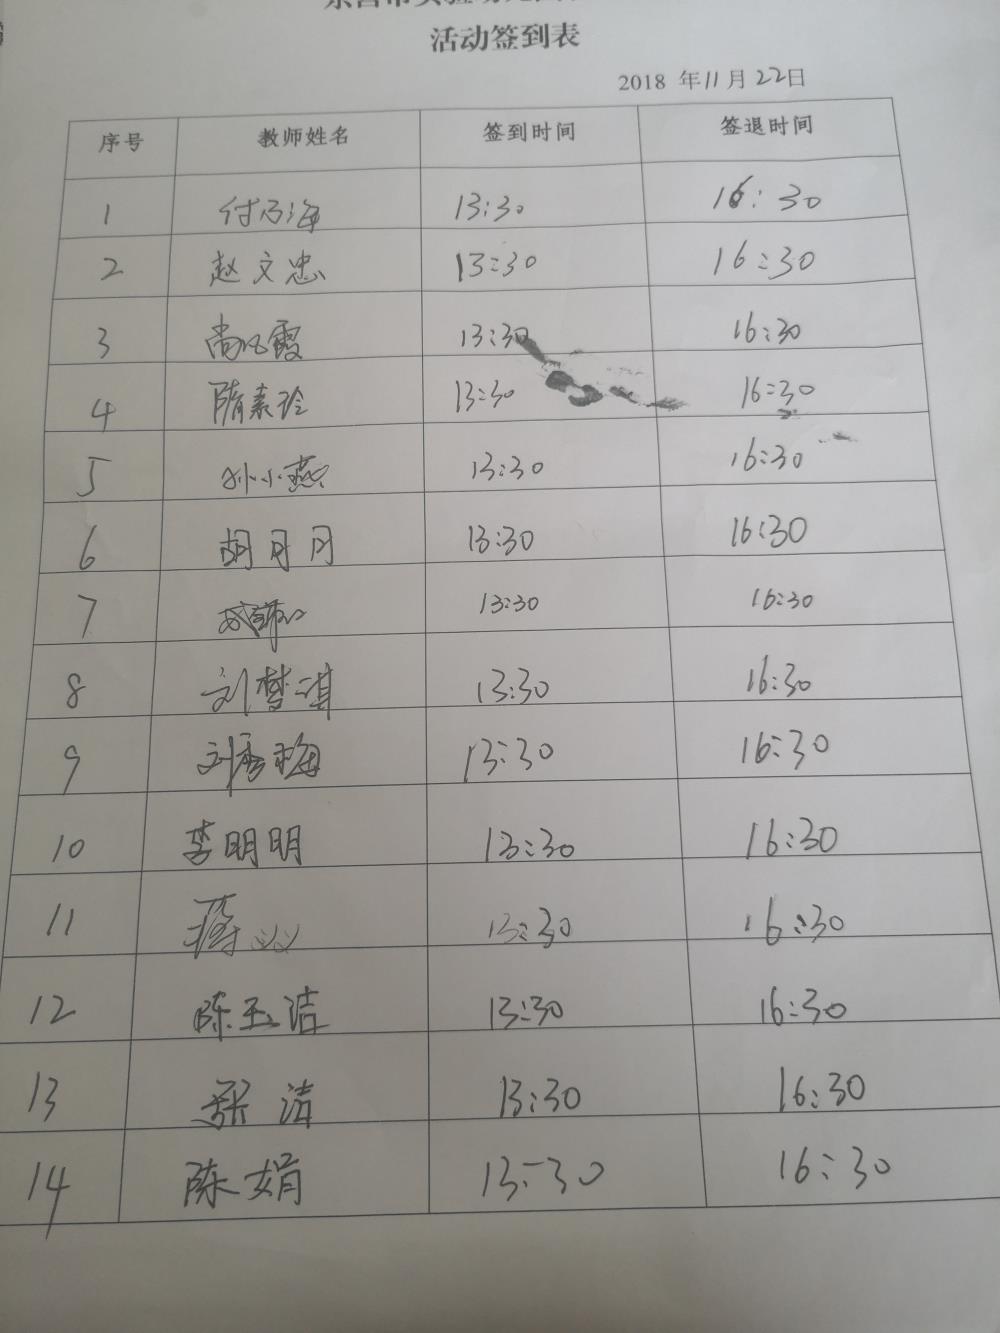 活动签到表
2018 年11月22日
序号 教师姓名 签到时间 签退时间
1 付乃海 13:30 16:30
2 赵文忠 13:30 16:30
3 尚凡霞 13:30 16:30
4 隋素玲 13:30 16:30
5 孙小燕 13:30 16:30
6 胡月月 13:30 16:30
7 13:30 16:30
8 刘梦琪 13:30 16:30
9 刘秀梅 13:30 16:30
10 李明明 13:30 16:30
11 13:30 16:30
12 陈玉洁 13:30 16:30
13 张洁 13:30 16:30
14 陈娟 13:30 16:30